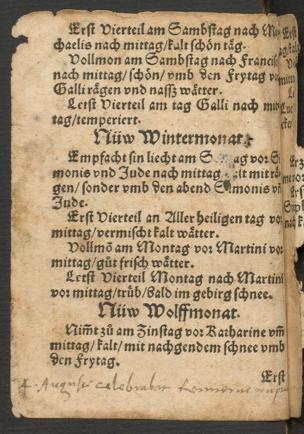 Erst Vierteil am Sambstag nach Mi-
chaelis nach mittag/kalt schön täg.
Vollmon am Sambstag nach Francisci
nach mittag/schön/vmb den Frytag vor
Galli rägen vnd nassz wätter.
Letst Vierteil am tag Galli nach mit-
tag/temperiert.
Nüw Wintermonat.
Empfacht sin liecht am Sontag vor Si
monis vnd Jude nach mittag/kalt mit rä-
gen/sonder vmb den abend Simonis vñ
Jude.
Erst Vierteil an Aller heiligen tag vor
mittag/vermischt kalt wätter.
Vollmõ am Montag vor Martini vor
mittag/güt frisch wätter.
Letst Vierteil Montag nach Martini
vor mittag/trüb/bald im gebirg schnee.
Nüw Wolffmonat.
Nim̃t zů am Zinstag vor Katharine vm̃
mittag/kalt/mit nachgendem schnee vmb
den Frytag.
Erst
4. Augusti celebrabat